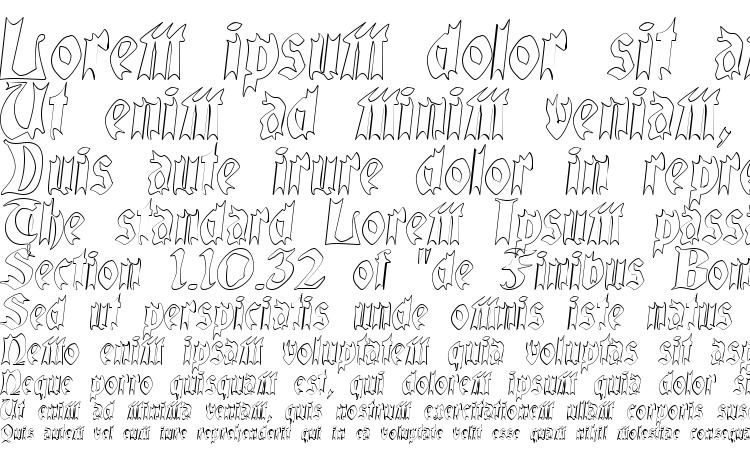 Lorem ipsum dolor sit a
Ut enim ad minim veniam,
Duis aute irure dolor in repre
The standard Lorem Ipsum passa
Section 1.10.32 of "de Finibus Bon
Sed ut perspiciatis unde omnis iste natus
Nemo enim ipsam voluptatem quia voluptas sit asp
Neque porro quisquam est, qui dolorem ipsum quia dolor si
Ut enim ad minima veniam, quis nostrum exercitationem ullam corporis sus
Duis autem vel eum iure reprehenderit qui in ea voluptate velit esse quam nihil molestiae consequa